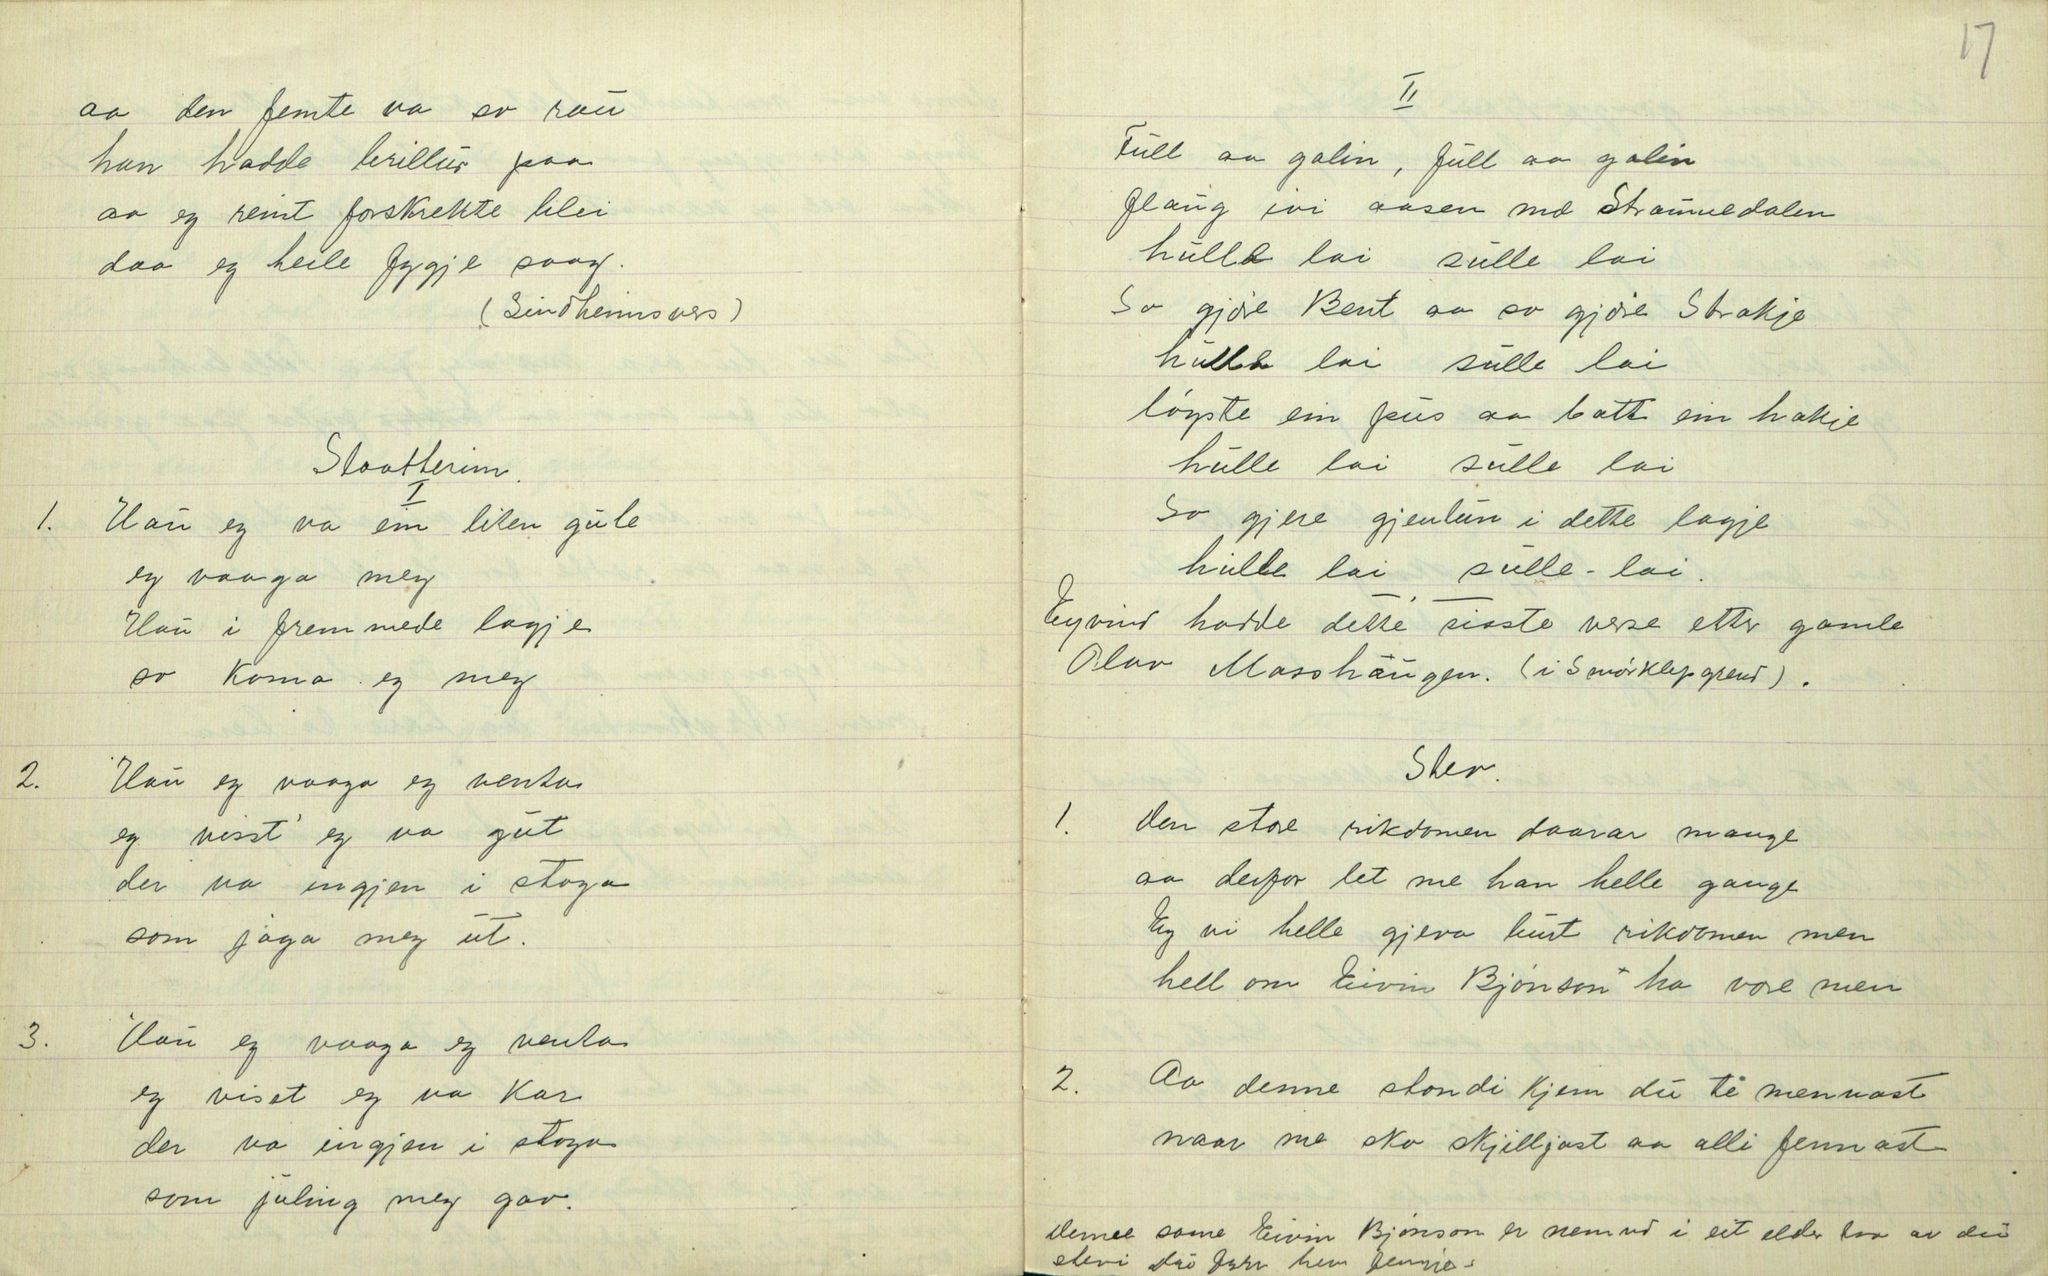 aa den femte va so rau
han hadde brillur paa
aa eg reint forskrekkte blei
daa eg heile fygje saag.
(Sindheimsvers)
Slaatterim.
I
1. Hau eg va ein liten gut
eg vaaga meg
Hau i fremmede lagje
so koma eg meg
2. Hau eg vaaga eg venta
eg visst' eg va gut
der va ingjen i stoga
som jaga meg ut.
3. Hau eg vaaga eg venta
eg visst eg va kar
der va ingjen i stoga
som juling meg gav.
17
II
Full aa galin, full aa galin
flaug ivi aasen med Straumedalen
hulle lai sulle lai
So gjøre Bent aa so gjøre Strakje
hulle lai sulle lai
løyste ein pus aa batt ein hakje
hulle lai sulle lai
So gjere gjentun i dette lagje
hulle lai sulle-lai.
Eyvind hadde dette sisste verse etter gamle
Olav Masshaugen. (i Smørklepgrend).
Stev.
1. Den store rikdomen daarar mange
aa derfor let me han helle gange
Eg vi helle gjeva burt rikdomen men
hell om Eivin Bjønson+ ha vore men
2. Aa denne stondi kjem du te mennast
naar me ska skjilljast aa alli fennast
Denne same Eivin Bjønson er nemnd i eit elder två av dei
stevi du fyrr hev fengje.